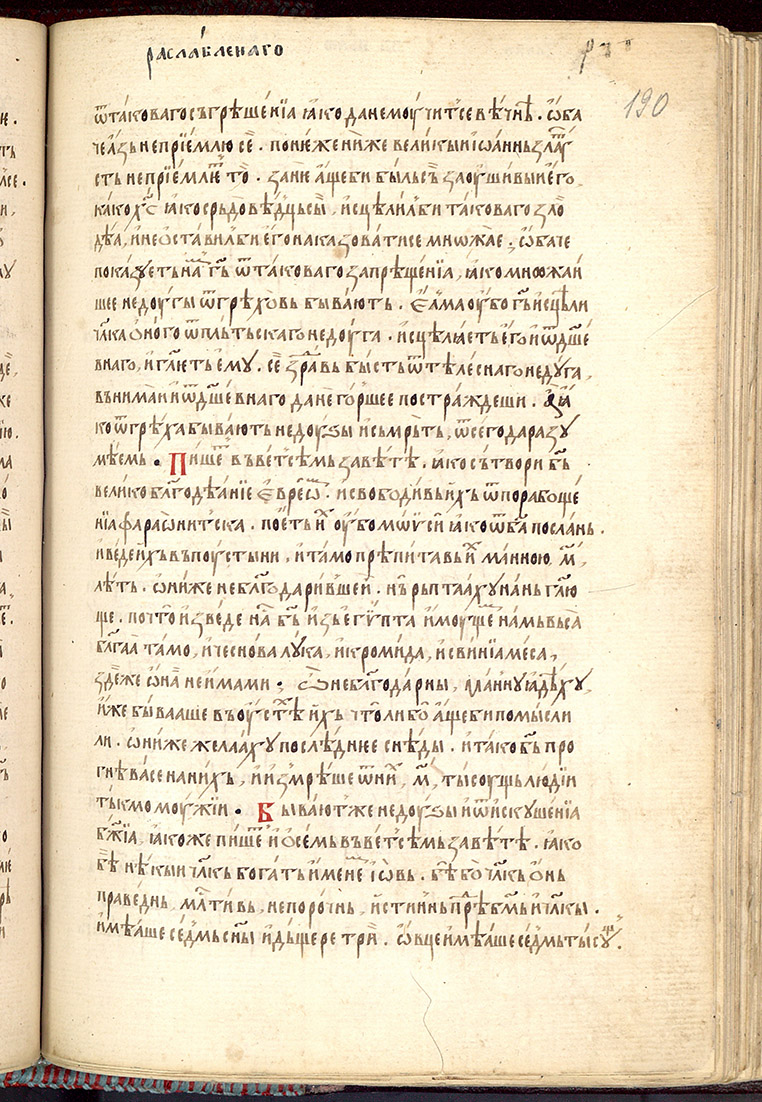 раслабленаго
рч҃ 190
ѿ таковаго съгрѣшенїа ꙗко да не моучит се вѣчнѣ . ѡба
че азь не прїемлю се . понеже ни же великыи їѡаннь злат
сть не прїемлⷮе то . зане аще би быль сь заоушивыи его ,
како хс ꙗко срⷣьцевѣдць сы , исцѣлил би таковаго зло
дѣа , и не оставил би его наказовати се мнѡжае . ѡбаче
показꙋеть наⷨ гь ѿ таковаго запрѣщенїа , ꙗко мнѡжаи
шее недоугы ѿ грѣхѡвь бывають . Елма оубо гь исцѣли
члка оного ѿ пльтьскаго недоуга . исцѣлꙗеть его и ѿ дше
внаго , и глеть емꙋ . се здравь бысть ѿ тѣлеснаго недꙋга ,
вънимаи и ѿ дшевнаго да не горшее постраждеши . Ꙗ
ко ѿ грѣха бывають недоуѕы и сьмрьть , ѿ сего да разꙋ
мѣемь . Пишеⷮ въ ветсѣмь завѣтѣ . ꙗко сътвори бь
велико блгодѣанїе еврѣѡⷨ . и свободивь ихь ѿ порабоще
нїа фараѡнитска . поеть иⷯ оубо мѡѵси ꙗко ѿ ба послань .
и веде ихь въ поустыни , и тамо прѣпитавь иⷯ манною м҃
лѣть . ѡни же неблгодарившеи . нь рьптаахꙋ на нь глю
ще . почто изведе на бь изь егѵпта имоущеⷨ намь вьса
блгаа тамо , и чеснова лꙋка , и кромида , и свинїа меса ,
зде же ѡна не имами ; Ѡ неблгодарны , маннꙋ ꙗдѣхꙋ ,
иже бывааше въ оустѣⷯ ихь что либо аще би помысли
ли . ѡни же желаахꙋ послѣднее снѣды . и тако бь про
гнѣва се на нихь , и измрѣше ѿ ниⷯ , м҃ , тысоущь людїи
тькмо моужїи . Бывают же недоуѕы и ѿ искꙋшенїа
бжїа , ꙗкоже пишеⷮ и о семь въ ветсѣмь завѣтѣ . ꙗко
бѣ нѣкыи члкь богать именеⷨ їѡвь . бѣ бо члкь онь
праведнь , млтивь , непорочнь , истиннь прѣⷣ бмь и члкы .
имѣаше седмь сны и дьщере три . ѡвце имѣаше седмь тысꙋщь .